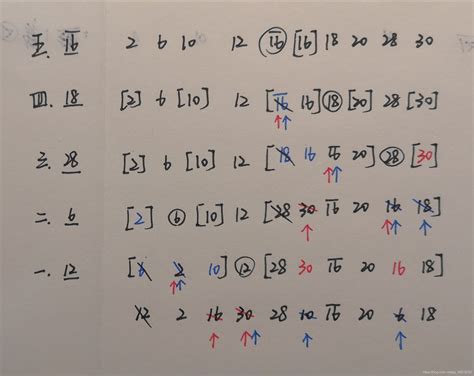 五. 1̅6̅ 2 6 10 12 1̅6̅ [16] 18 20 28 30
四. 18 [2] 6 [10] 12 [1̅6̅ 16] 18 [20] 28 [30]
三. 28 [2] 6 [10] 12 [18 16 1̅6̅ 20] 28 [30]
二. 6 [2] 6 [10] 12 [28 30 1̅6̅ 20 16 18]
一. 12 [6 2 10] 12 [28 30 1̅6̅ 20 16 18]
12 2 16 30 28 10 1̅6̅ 20 6 18